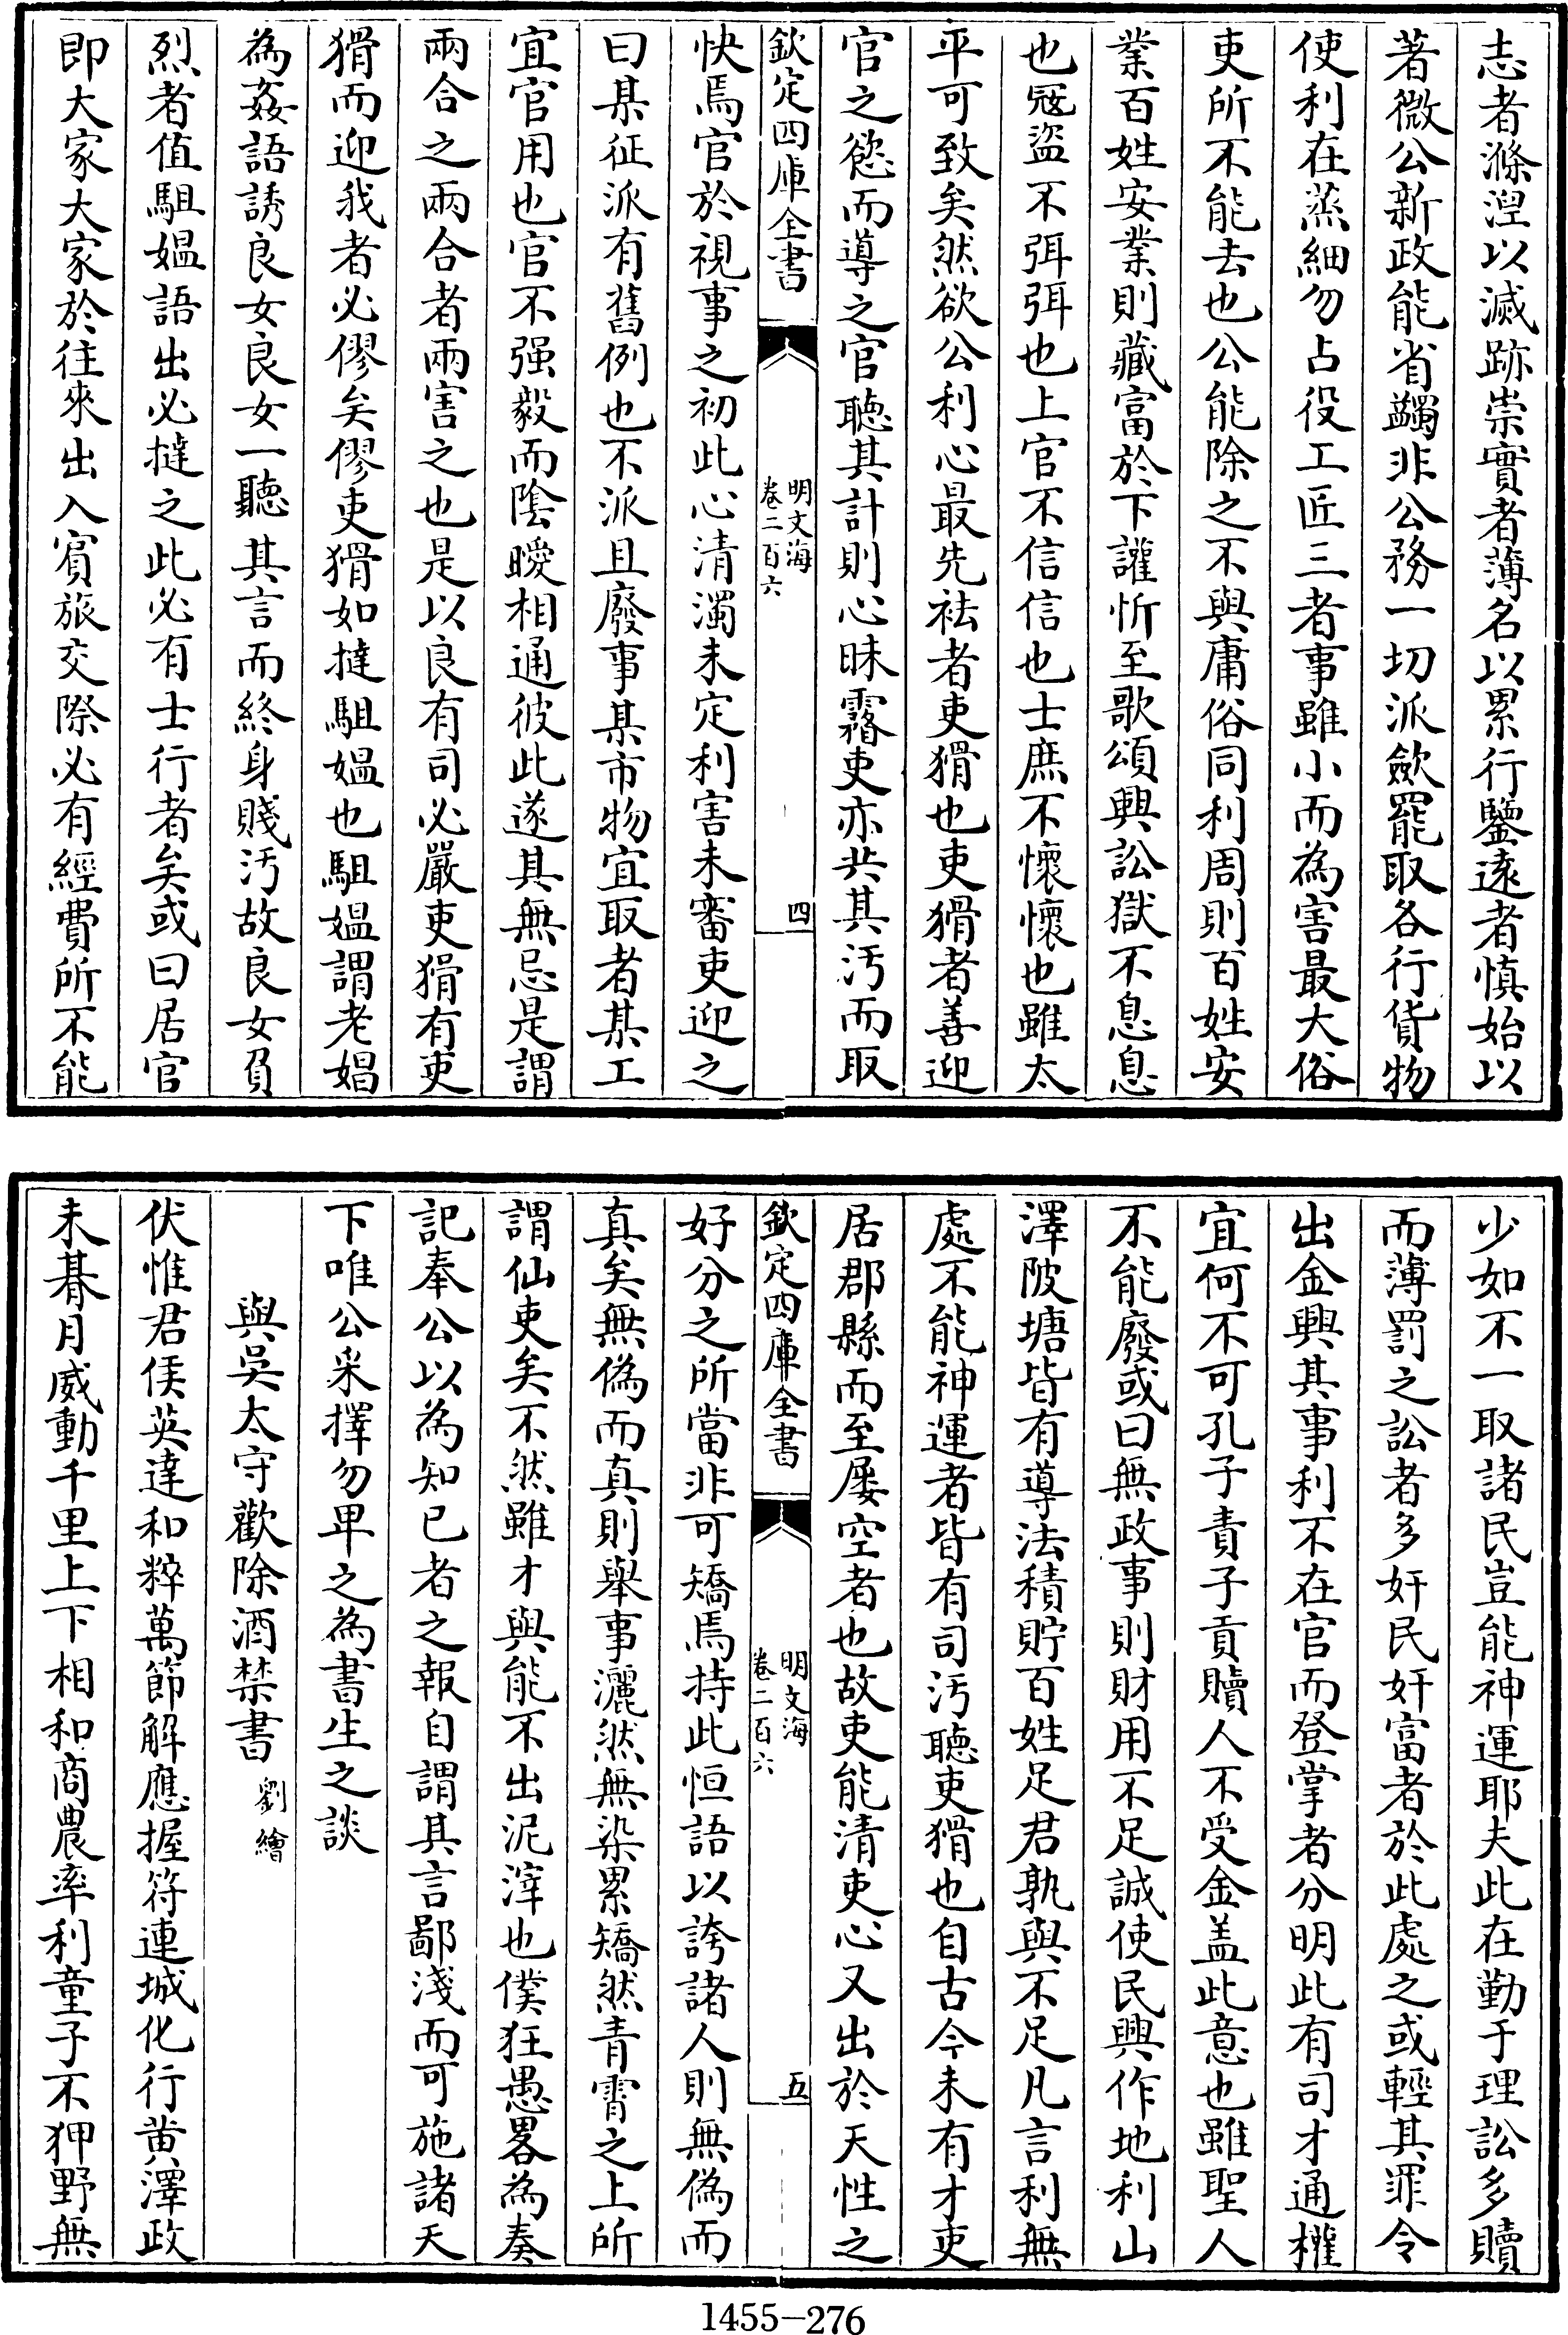 志者滌涅以滅跡崇實者薄名以累行鑒遠者慎始以
著微公新政能省蠲非公務一切派歛罷取各行貨物
使利在蒸細勿占役工匠三者事雖小而為害最大俗
吏所不能去也公能除之不與庸俗同利周則百姓安
業百姓安業則藏富於下讙忻至歌頌興訟獄不息息
也冦盜不弭弭也上官不信信也士庶不懷懷也雖太
平可致矣然欲公利心最先袪者吏猾也吏猾者善迎
官之慾而導之官聽其計則心昧霧吏亦共其汚而取
欽定四庫全書
明文海
卷二百六
四
快焉官於視事之初此心清濁未定利害未審吏迎之
曰某征派有舊例也不派且廢事某市物宜取者某工
宜官用也官不强毅而陰曖相通彼此遂其無忌是謂
兩合之兩合者兩害之也是以良有司必嚴吏猾有吏
猾而迎我者必僇矣僇吏猾如撻駔媼也駔媼謂老娼
為姦語誘良女良女一聽其言而終身賤汚故良女負
烈者值駔媼語出必撻之此必有士行者矣或曰居官
即大家大家於往來出入賓旅交際必有經費所不能
少如不一取諸民豈能神運耶夫此在勤于理訟多贖
而薄罰之訟者多奸民奸富者於此處之或輕其罪令
出金興其事利不在官而登掌者分明此有司才通權
宜何不可孔子責子貢贖人不受金盖此意也雖聖人
不能廢或曰無政事則財用不足誠使民興作地利山
澤陂塘皆有導法積貯百姓足君孰與不足凡言利無
處不能神運者皆有司汚聽吏猾也自古今未有才吏
居郡縣而至屢空者也故吏能清吏心又出於天性之
欽定四庫全書
明文海
卷二百六
五
好分之所當非可矯焉持此恒語以誇諸人則無偽而
真矣無偽而真則舉事灑然無染累矯然青霄之上所
謂仙吏矣不然雖才與能不出泥滓也僕狂愚畧為奏
記奉公以為知已者之報自謂其言鄙淺而可施諸天
下唯公采擇勿卑之為書生之談
與吳太守歡除酒禁書 劉繪
伏惟君侯英達和粹萬節解應握符連城化行黄澤政
未朞月威動千里上下相和商農率利童子不狎野無
1455-276